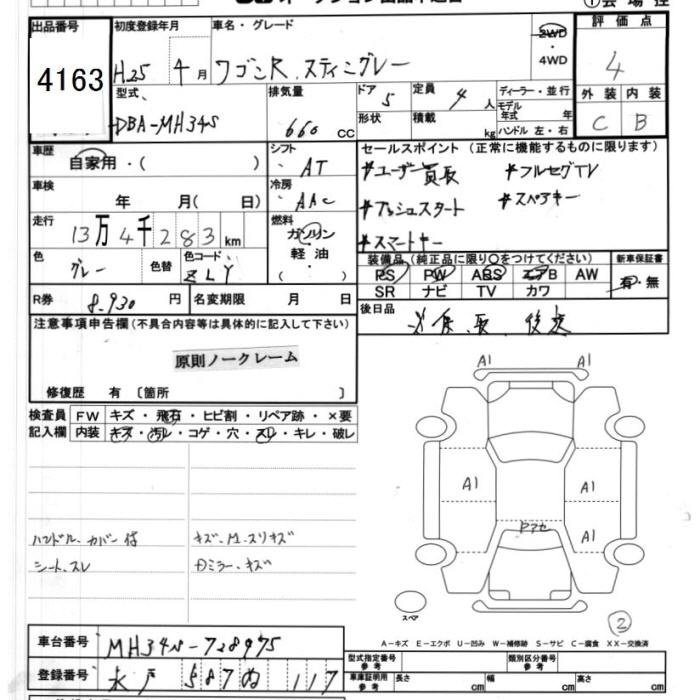 出品番号
4163
初度登録年月
H.25 年 4 月
車名・グレード
ワゴンR.スティングレー
2WD
・
4WD
評価点
4
外装
内装
C
B
型式
DBA-MH34S
排気量
660 CC
ドア
5
定員
4 人
形状
積載
kg
ディーラー・並行
モデル
年式 年
ハンドル 左・右
車歴
自家用・( )
シフト
AT
車検
年 月( 日)
冷房
AAC
走行
13万4千283km
燃料
ガソリン
・
軽油
・
( )
色
グレー
色替
色コード
ZLY
R券
8.930 円
名変期限
月 日
セールスポイント(正常に機能するものに限ります)
*ユーザー買取
*フルセグTV
*プッシュスタート
*スペアキー
*スマートキー
装備品(純正品に限り○をつけてください)
新車保証書
PS PW ABS エアB AW
SR ナビ TV カワ
有・無
後日品
注意事項申告欄(不具合内容等は具体的に記入して下さい)
原則ノークレーム
修復歴 有 〔箇所 〕
検査員
記入欄
FW キズ・飛石・ヒビ割・リペア跡・×要
内装 キズ・汚レ・コゲ・穴・スレ・キレ・破レ
ハンドル.カバー付
シート.スレ
キズ.M.スリキズ
Dミラー.キズ
A1
A1
A1
A1
A1
スペア
2
A-キズ E-エクボ U-凹み W-補修跡 S-サビ C-腐食 XX-交換済
車台番号
MH34S-728975
登録番号
水戸 587 ぬ 117
型式指定番号
参考
類別区分番号
参考
車庫証明用
参考
長さ cm
幅 cm
高さ cm